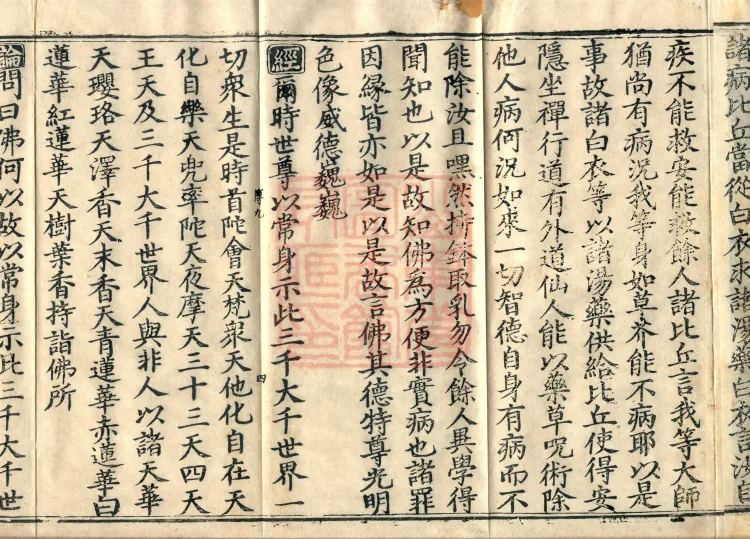 諸病比丘當從白衣求諸湯藥白衣言汝自
疾不能救安能救餘人諸比丘言我等大師
猶尚有病況我等身如草芥能不病耶以是
事故諸白衣等以諸湯藥供給比丘使得安
隱坐禪行道有外道仙人能以藥草呪術除
他人病何況如來一切智德自身有病而不
能除汝且嘿然持鉢取乳勿令餘人異學得
聞知也以是故知佛為方便非實病也諸罪
因緣皆亦如是以是故言佛其德特尊光明
色像威德巍巍
經爾時世尊以常身示此三千大千世界一
薄九
四
切衆生是時首陀會天梵衆天他化自在天
化自樂天兜率陀天夜摩天三十三天四天
王天及三千大千世界人與非人以諸天華
天瓔珞天澤香天末香天青蓮華赤蓮華白
蓮華紅蓮華天樹葉香持詣佛所
論問曰佛何以故以常身示此三千大千世